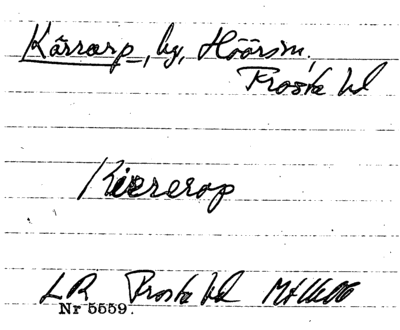 Kärrarp, by, Höörs sn,
Frosta hd
Kiererop
LR Frosta hd
Nr 5559.